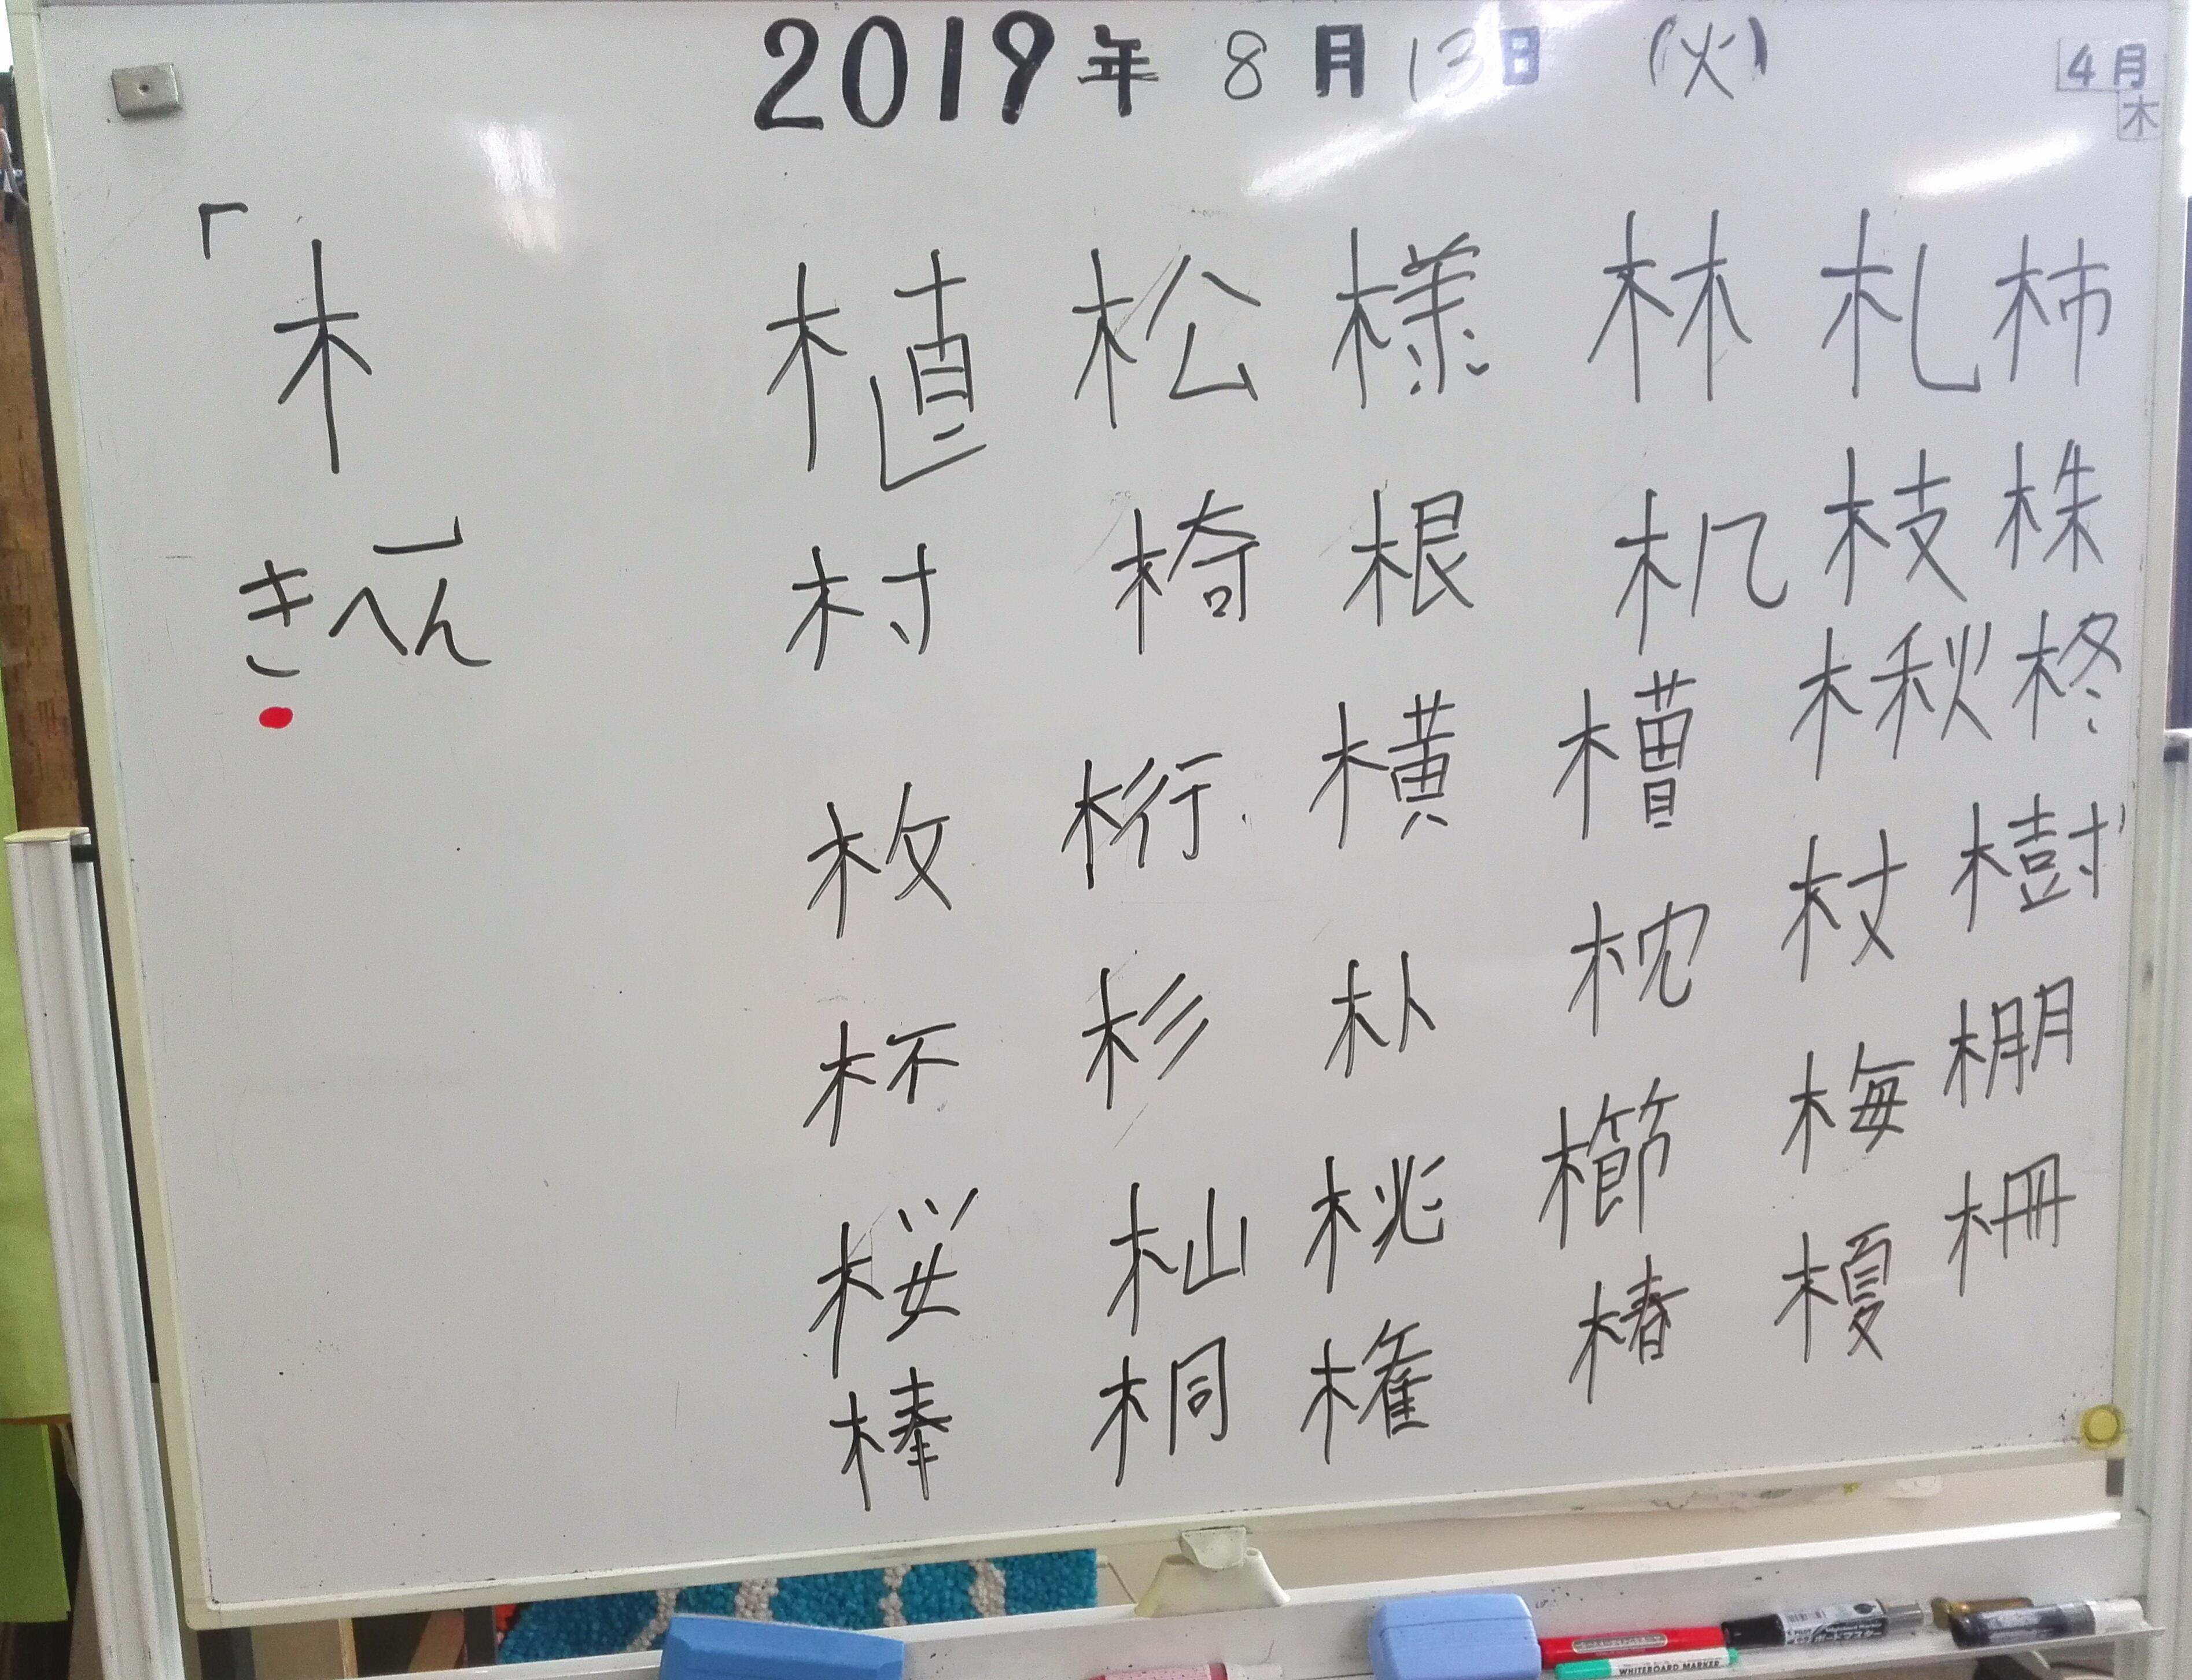 2019年 8月13日 (火)
4月
木
「木」
きへん
植 松 様 林 札 柿
村 椅 根 机 枝 株
枚 桁 横 槽 楸 柊
杯 杉 朴 枕 杖 樹
桜 杣 桃 櫛 梅 棚
棒 桐 権 椿 榎 柵
WHITEBOARD MARKER
ボードマスター